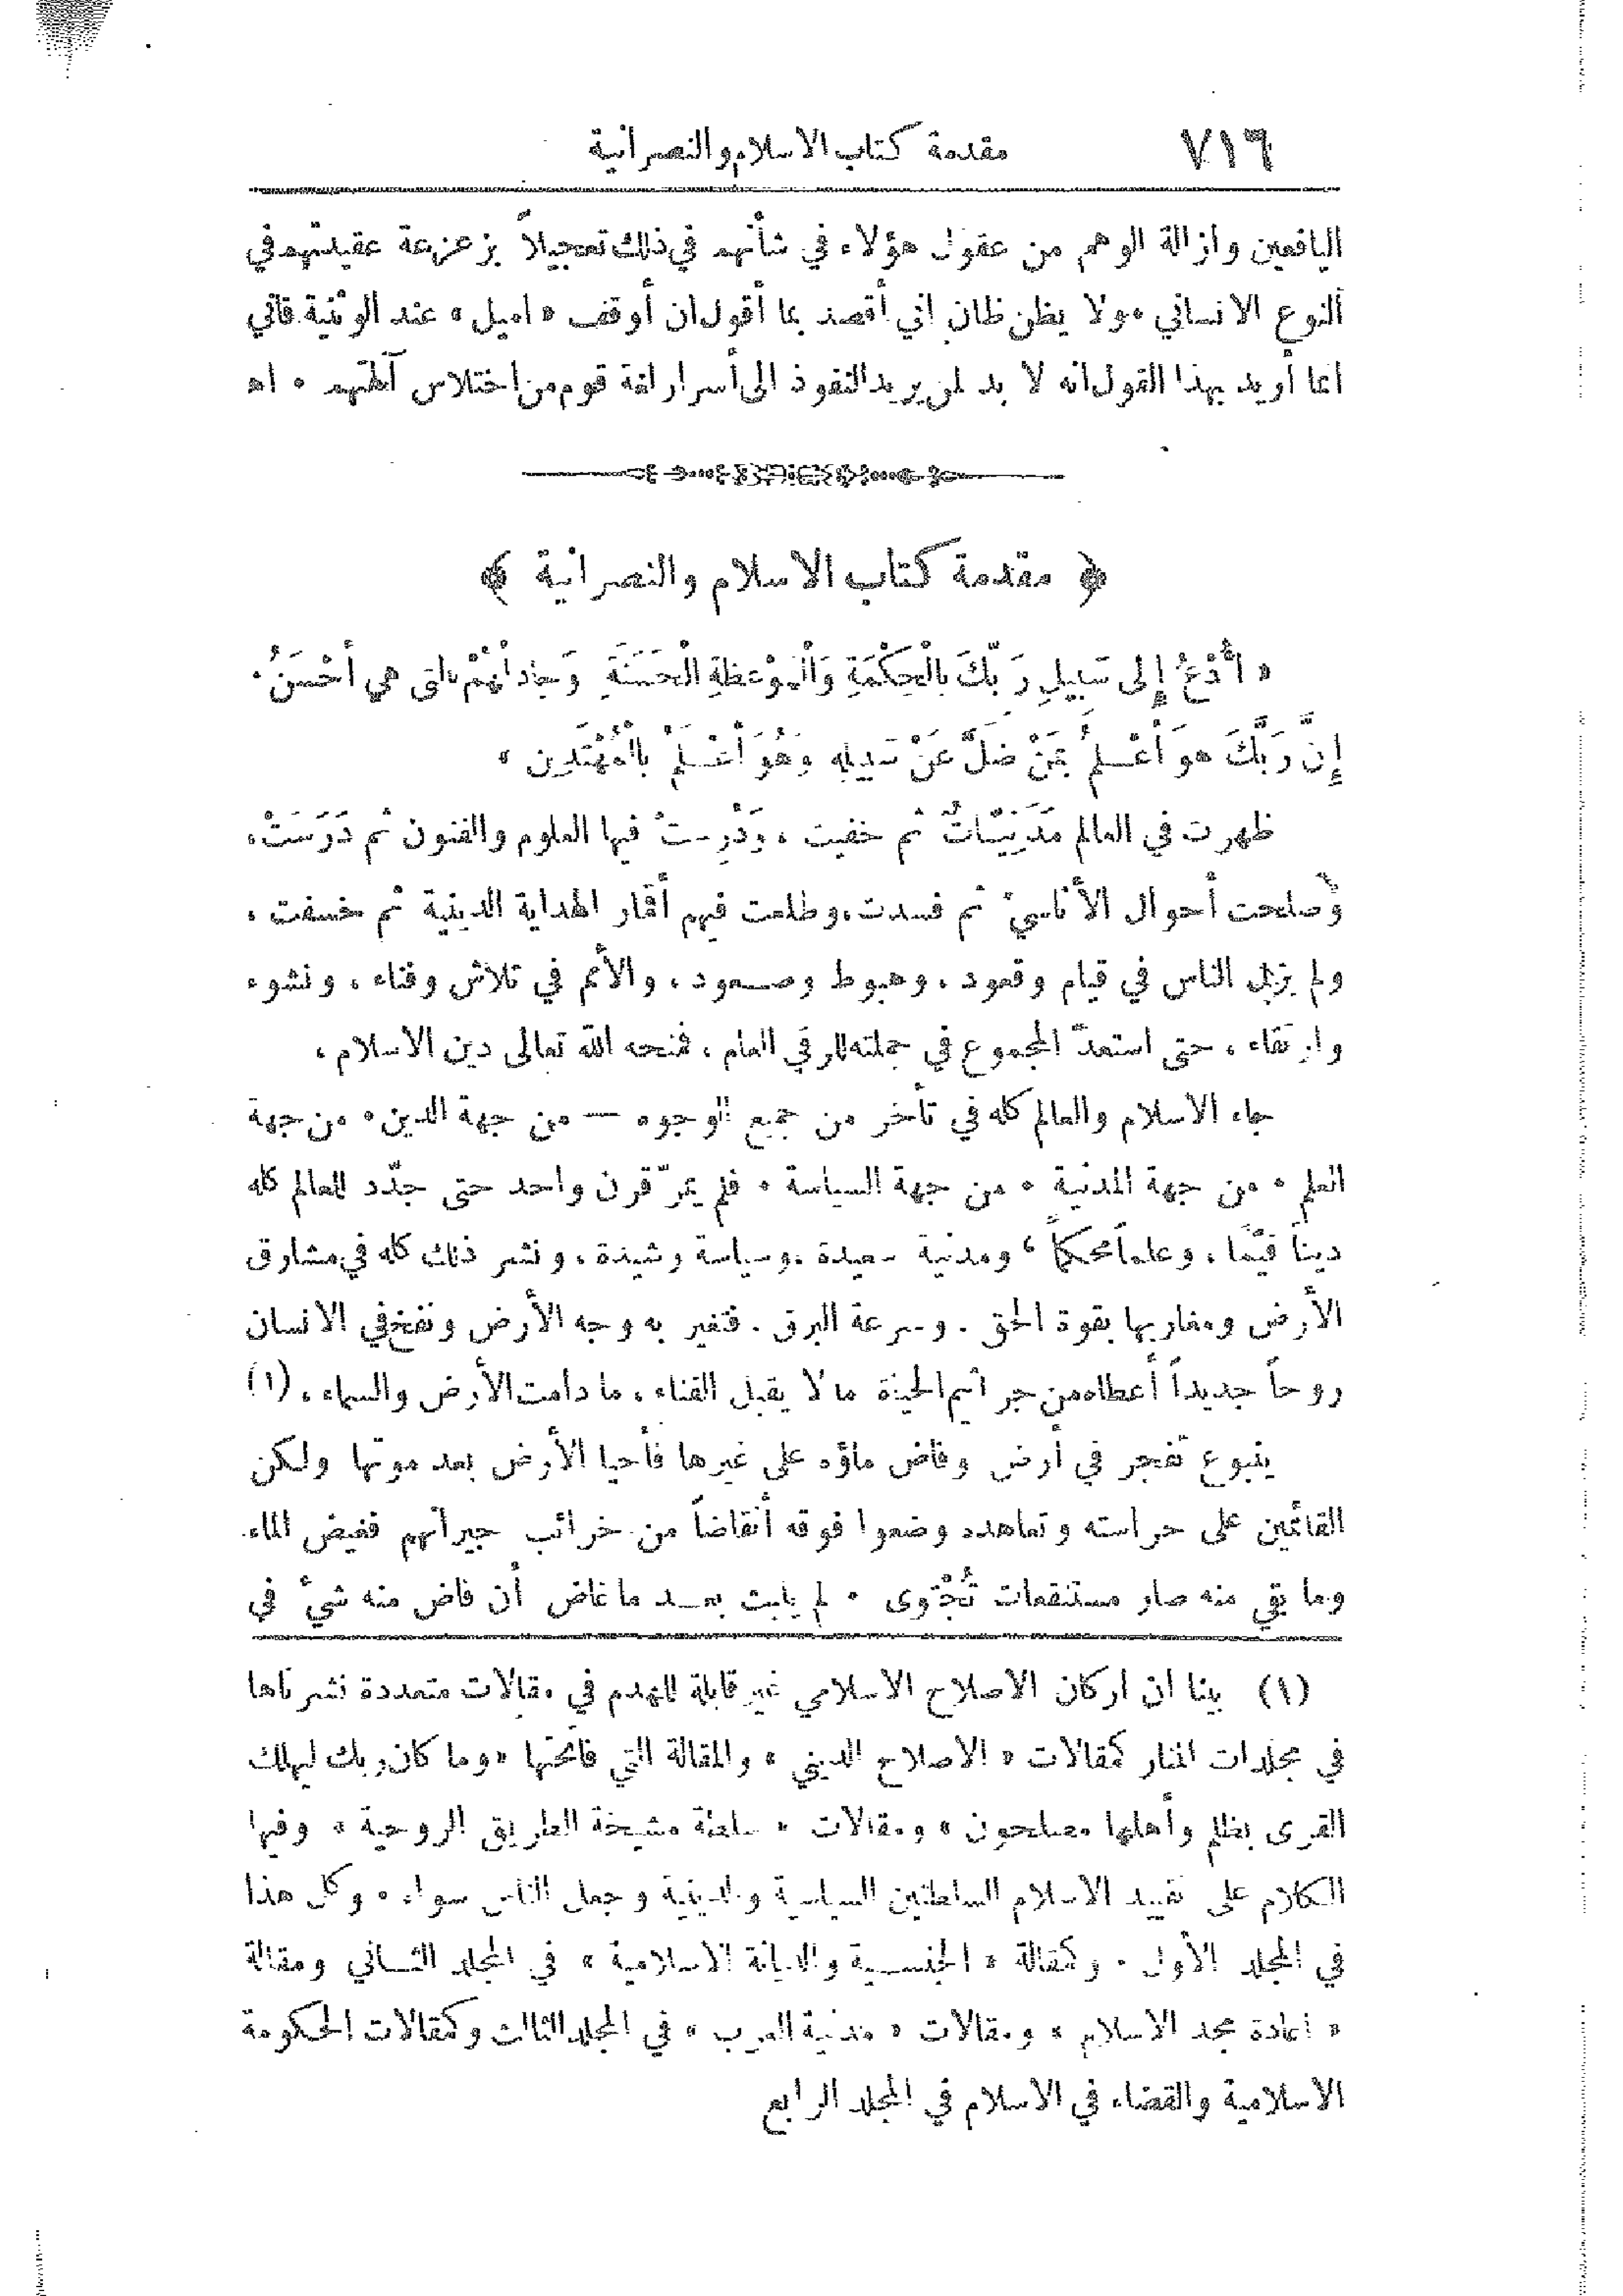 ٧١٦ مقدمة كتاب الاسلام والنصرانية
اليافعين وازالة الوهم من عقول هؤلاء في شأنهم في ذلك تعجيلاً بزعزعة عقيدتهم في
النوع الانساني ٠ ولا يظن ظان اني أقصد بما أقول ان أوقف « اميل » عند الوثنية فاني
انما أريد بهذا القول انه لا بد لمن يريد النفوذ الى أسرار لغة قوم من اختلاس آلهتهم ٠ اهـ
﴿ مقدمة كتاب الاسلام والنصرانية ﴾
« اُدْعُ إِلى سَبِيلِ رَبِّكَ بِالْحِكْمَةِ وَالْمَوْعظةِ الْحَسَنَةِ وَجَادلْهُمْ بالتى هي أَحْسَنُ .
إِنَّ رَبَّكَ هوَ أَعْلمُ بِمَنْ ضَلَّ عَنْ سَبيلهِ وَهُوَ أَعْلَمُ بالْمُهْتَدين »
ظهرت في العالم مَدَنِيَّاتٌ ثم خفيت ، وَدُرِستْ فيها العلوم والفنون ثم دَرَسَتْ ،
وصلحت أحوال الأناسيّ ثم فسدت ، وطلعت فيهم أقمار الهداية الدينية ثم خسفت ،
ولم يزل الناس في قيام وقعود ، وهبوط وصعود ، والأمم في تلاش وفناء ، ونشوء
وارتقاء ، حتى استعدّ المجموع في جملته للرقي العام ، فمنحه الله تعالى دين الاسلام ،
جاء الاسلام والعالم كله في تأخر من جميع الوجوه — من جهة الدين ٠ من جهة
العلم ٠ من جهة المدنية ٠ من جهة السياسة ٠ فلم يمرّ قرن واحد حتى جدّد للعالم كله
ديناً قيّمًا ، وعلماً محكماً ، ومدنية سعيدة ، وسياسة رشيدة ، ونشر ذلك كله في مشارق
الأرض ومغاربها بقوة الحق . وسرعة البرق . فتغير به وجه الأرض ونفخ في الانسان
روحاً جديداً أعطاه من جراثيم الحياة ما لا يقبل الفناء ، ما دامت الأرض والسماء ، (١)
ينبوع تفجر في أرض وفاض ماؤه على غيرها فأحيا الأرض بعد موتها ولكن
القائمين على حراسته وتعاهده وضعوا فوقه أنقاضاً من خرائب جيرانهم فغيض الماء
وما بقي منه صار مستنقعات تُجْتوى ٠ لم يلبث بعد ما غاض أن فاض منه شيء في
(١) بينا ان اركان الاصلاح الاسلامي غير قابلة للهدم في مقالات متعددة نشرناها
في مجلدات المنار كمقالات « الاصلاح الديني » والمقالة التي فاتحتها « وما كان ربك ليهلك
القرى بظلم وأهلها مصلحون » ومقالات « سلطة مشيخة الطريق الروحية » وفيها
الكلام على تقييد الاسلام السلطتين السياسية والدينية وجعل الناس سواء ٠ وكل هذا
في المجلد الأول ٠ وكمقالة « الجنسية والديانة الاسلامية » في المجلد الثاني ومقالة
« اعادة مجد الاسلام » ومقالات « مدنية العرب » في المجلد الثالث وكمقالات الحكومة
الاسلامية والقضاء في الاسلام في المجلد الرابع